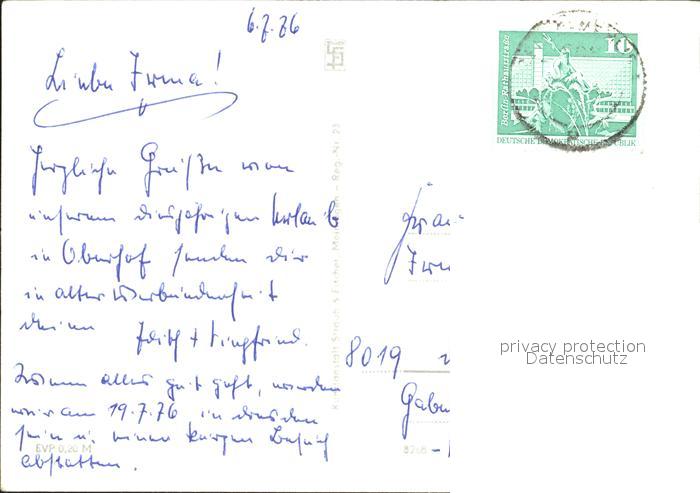 6.7.76
Liebe Irma!
Herzliche Grüße von
unserem diesjährigen Urlaub
in Oberhof senden Dir
in alter Verbundenheit
deine Edith + Siegfried.
Wenn alles gut geht, werden
wir am 19.7.76 in Dresden
sein u. einen kurzen Besuch
abstatten.
EVP 0,20 M
Straub & Fischer, Meiningen – Reg.-Nr. 23
10
Berlin, Rathausstraße
DEUTSCHE DEMOKRATISCHE REPUBLIK
Frau
Irm
8019
Gabe
privacy protection
Datenschutz